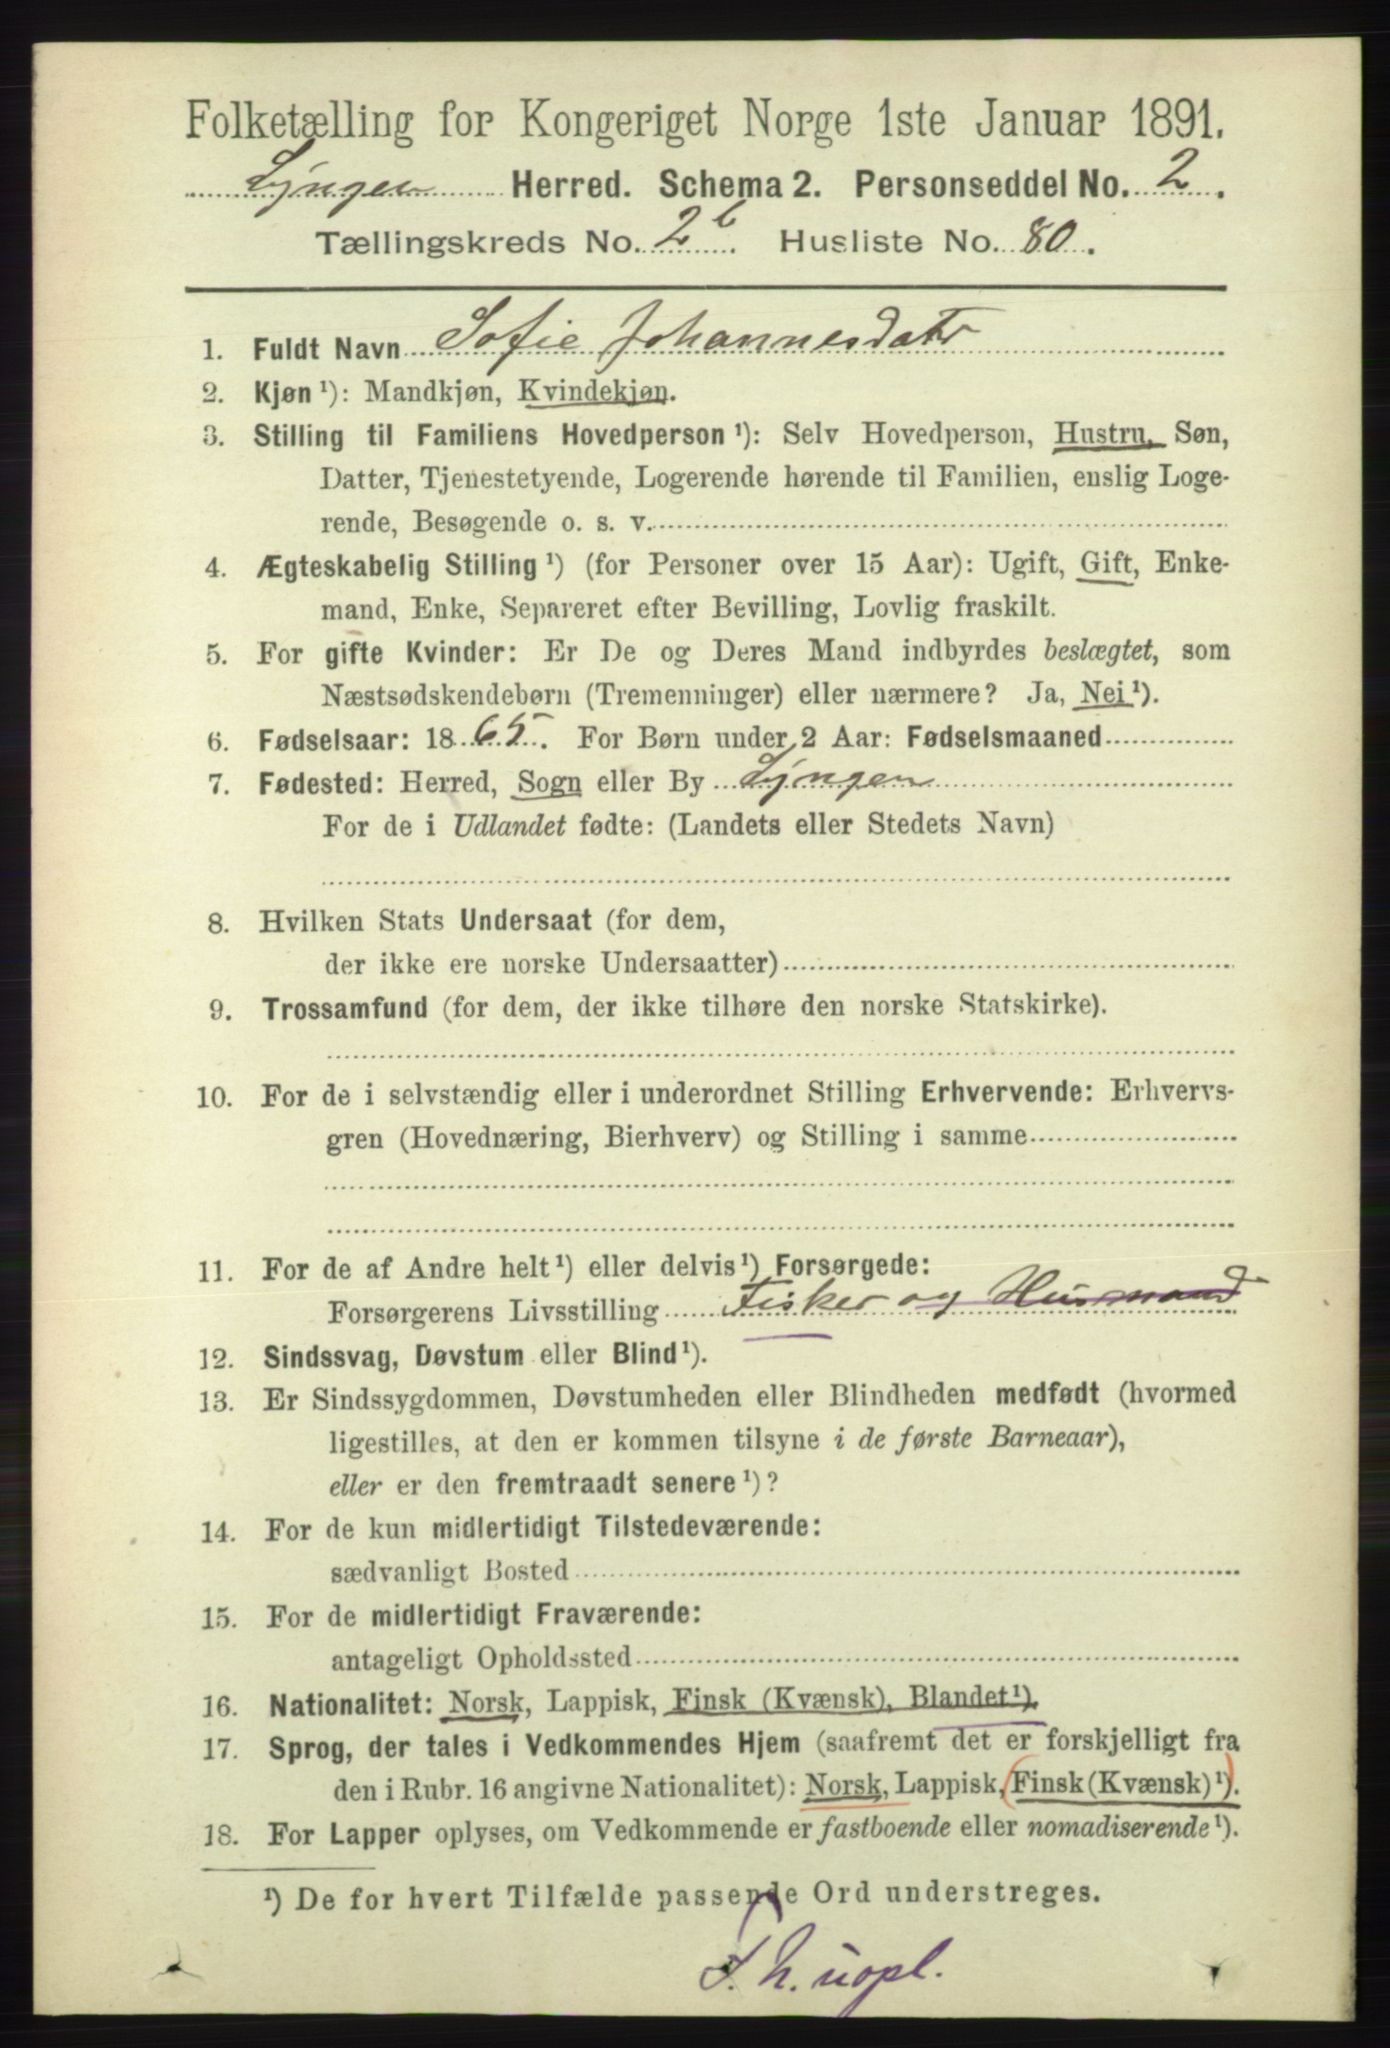 Folketælling for Kongeriget Norge 1ste Januar 1891.
Lyngen Herred. Schema 2. Personseddel No. 2.
Tællingskreds No. 2b. Husliste No. 80.
1. Fuldt Navn Sofie Johannesdatr
2. Kjøn ¹): Mandkjøn, Kvindekjøn.
3. Stilling til Familiens Hovedperson ¹): Selv Hovedperson, Hustru, Søn,
Datter, Tjenestetyende, Logerende hørende til Familien, enslig Loge-
rende, Besøgende o. s. v.
4. Ægteskabelig Stilling ¹) (for Personer over 15 Aar): Ugift, Gift, Enke-
mand, Enke, Separeret efter Bevilling, Lovlig fraskilt.
5. For gifte Kvinder: Er De og Deres Mand indbyrdes beslægtet, som
Næstsødskendebørn (Tremenninger) eller nærmere? Ja, Nei ¹).
6. Fødselsaar: 1865. For Børn under 2 Aar: Fødselsmaaned
7. Fødested: Herred, Sogn eller By Lyngen
For de i Udlandet fødte: (Landets eller Stedets Navn)
8. Hvilken Stats Undersaat (for dem,
der ikke ere norske Undersaatter)
9. Trossamfund (for dem, der ikke tilhøre den norske Statskirke).
10. For de i selvstændig eller i underordnet Stilling Erhvervende: Erhvervs-
gren (Hovednæring, Bierhverv) og Stilling i samme
11. For de af Andre helt ¹) eller delvis ¹) Forsørgede:
Forsørgerens Livsstilling Fisker og Husmand
12. Sindssvag, Døvstum eller Blind ¹).
13. Er Sindssygdommen, Døvstumheden eller Blindheden medfødt (hvormed
ligestilles, at den er kommen tilsyne i de første Barneaar),
eller er den fremtraadt senere ¹)?
14. For de kun midlertidigt Tilstedeværende:
sædvanligt Bosted
15. For de midlertidigt Fraværende:
antageligt Opholdssted
16. Nationalitet: Norsk, Lappisk, Finsk (Kvænsk), Blandet ¹).
17. Sprog, der tales i Vedkommendes Hjem (saafremt det er forskjelligt fra
den i Rubr. 16 angivne Nationalitet): Norsk, Lappisk, (Finsk (Kvænsk) ¹).
18. For Lapper oplyses, om Vedkommende er fastboende eller nomadiserende ¹).
¹) De for hvert Tilfælde passende Ord understreges.